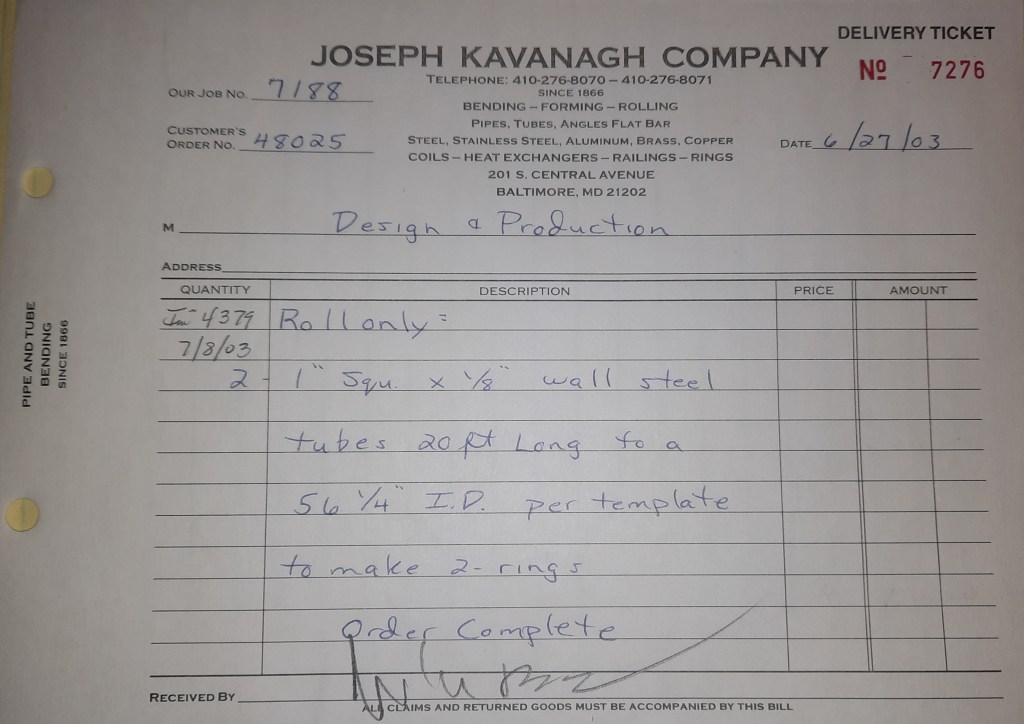 DELIVERY TICKET
JOSEPH KAVANAGH COMPANY
Nº 7276
TELEPHONE: 410-276-8070 – 410-276-8071
SINCE 1866
OUR JOB NO. 7188
BENDING – FORMING – ROLLING
PIPES, TUBES, ANGLES FLAT BAR
CUSTOMER'S ORDER NO. 48025
STEEL, STAINLESS STEEL, ALUMINUM, BRASS, COPPER
DATE 6/27/03
COILS – HEAT EXCHANGERS – RAILINGS – RINGS
201 S. CENTRAL AVENUE
BALTIMORE, MD 21202
M Design & Production
ADDRESS
QUANTITY DESCRIPTION PRICE AMOUNT
4379 Roll only:
7/8/03
2 - 1" Squ. x 1/8" wall steel
tubes 20 ft Long to a
56 1/4" I.D. per template
to make 2-rings
Order Complete
RECEIVED BY
ALL CLAIMS AND RETURNED GOODS MUST BE ACCOMPANIED BY THIS BILL
PIPE AND TUBE
BENDING
SINCE 1866